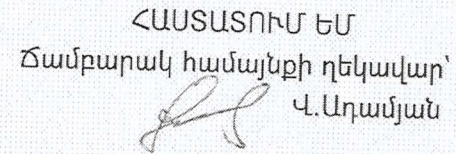 ՀԱՍՏԱՏՈՒՄ ԵՄ
Ճամբարակ համայնքի ղեկավար՝
Վ.Ադամյան